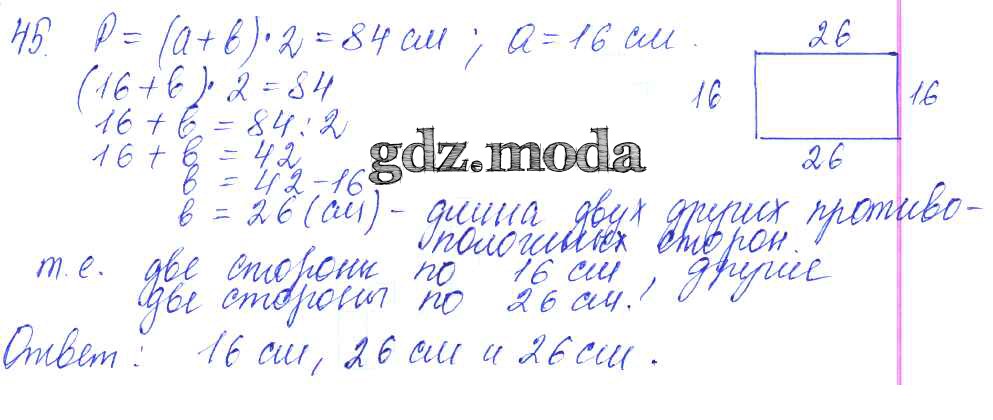 45. P = (a + в) · 2 = 84 см ; a = 16 см.
(16 + в) · 2 = 84
16 + в = 84 : 2
16 + в = 42
в = 42 - 16
в = 26 (см) - длина двух других противо-
положных сторон.
т.е. две стороны по 16 см, другие
две стороны по 26 см.
Ответ: 16 см, 26 см и 26 см.
26
16
16
26
gdz.moda